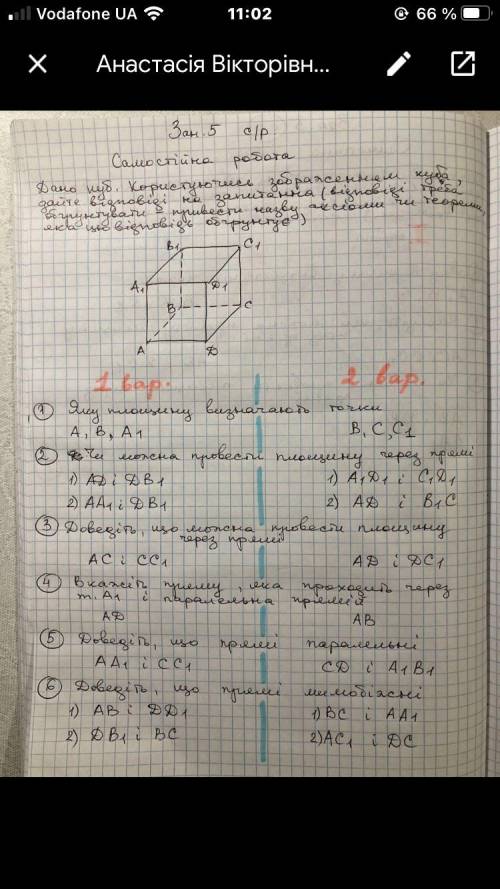 Vodafone UA
11:02
66 %
Анастасія Вікторівн...
Зан. 5 с/р
Самостійна робота
Дано куб. Користуючись зображенням куба,
дайте відповіді на запитання (відповіді треба
обґрунтувати = привести назву аксіоми чи теореми,
яка цю відповідь обґрунтує)
B1 C1
A1 D1
B C
A D
1 вар. 2 вар.
1 Яку площину визначають точки
A, B, A1 B, C, C1
2 Чи можна провести площину через прямі
1) AD і DB1 1) A1D1 і C1D1
2) AA1 і DB1 2) AD і B1C
3 Доведіть, що можна провести площину
через прямі
AC і CC1 AD і DC1
4 Вкажіть пряму, яка проходить через
т. A1 і паралельна прямій
AD AB
5 Доведіть, що прямі паралельні
AA1 і CC1 CD і A1B1
6 Доведіть, що прямі мимобіжні
1) AB і DD1 1) BC і AA1
2) DB1 і BC 2) AC1 і DC